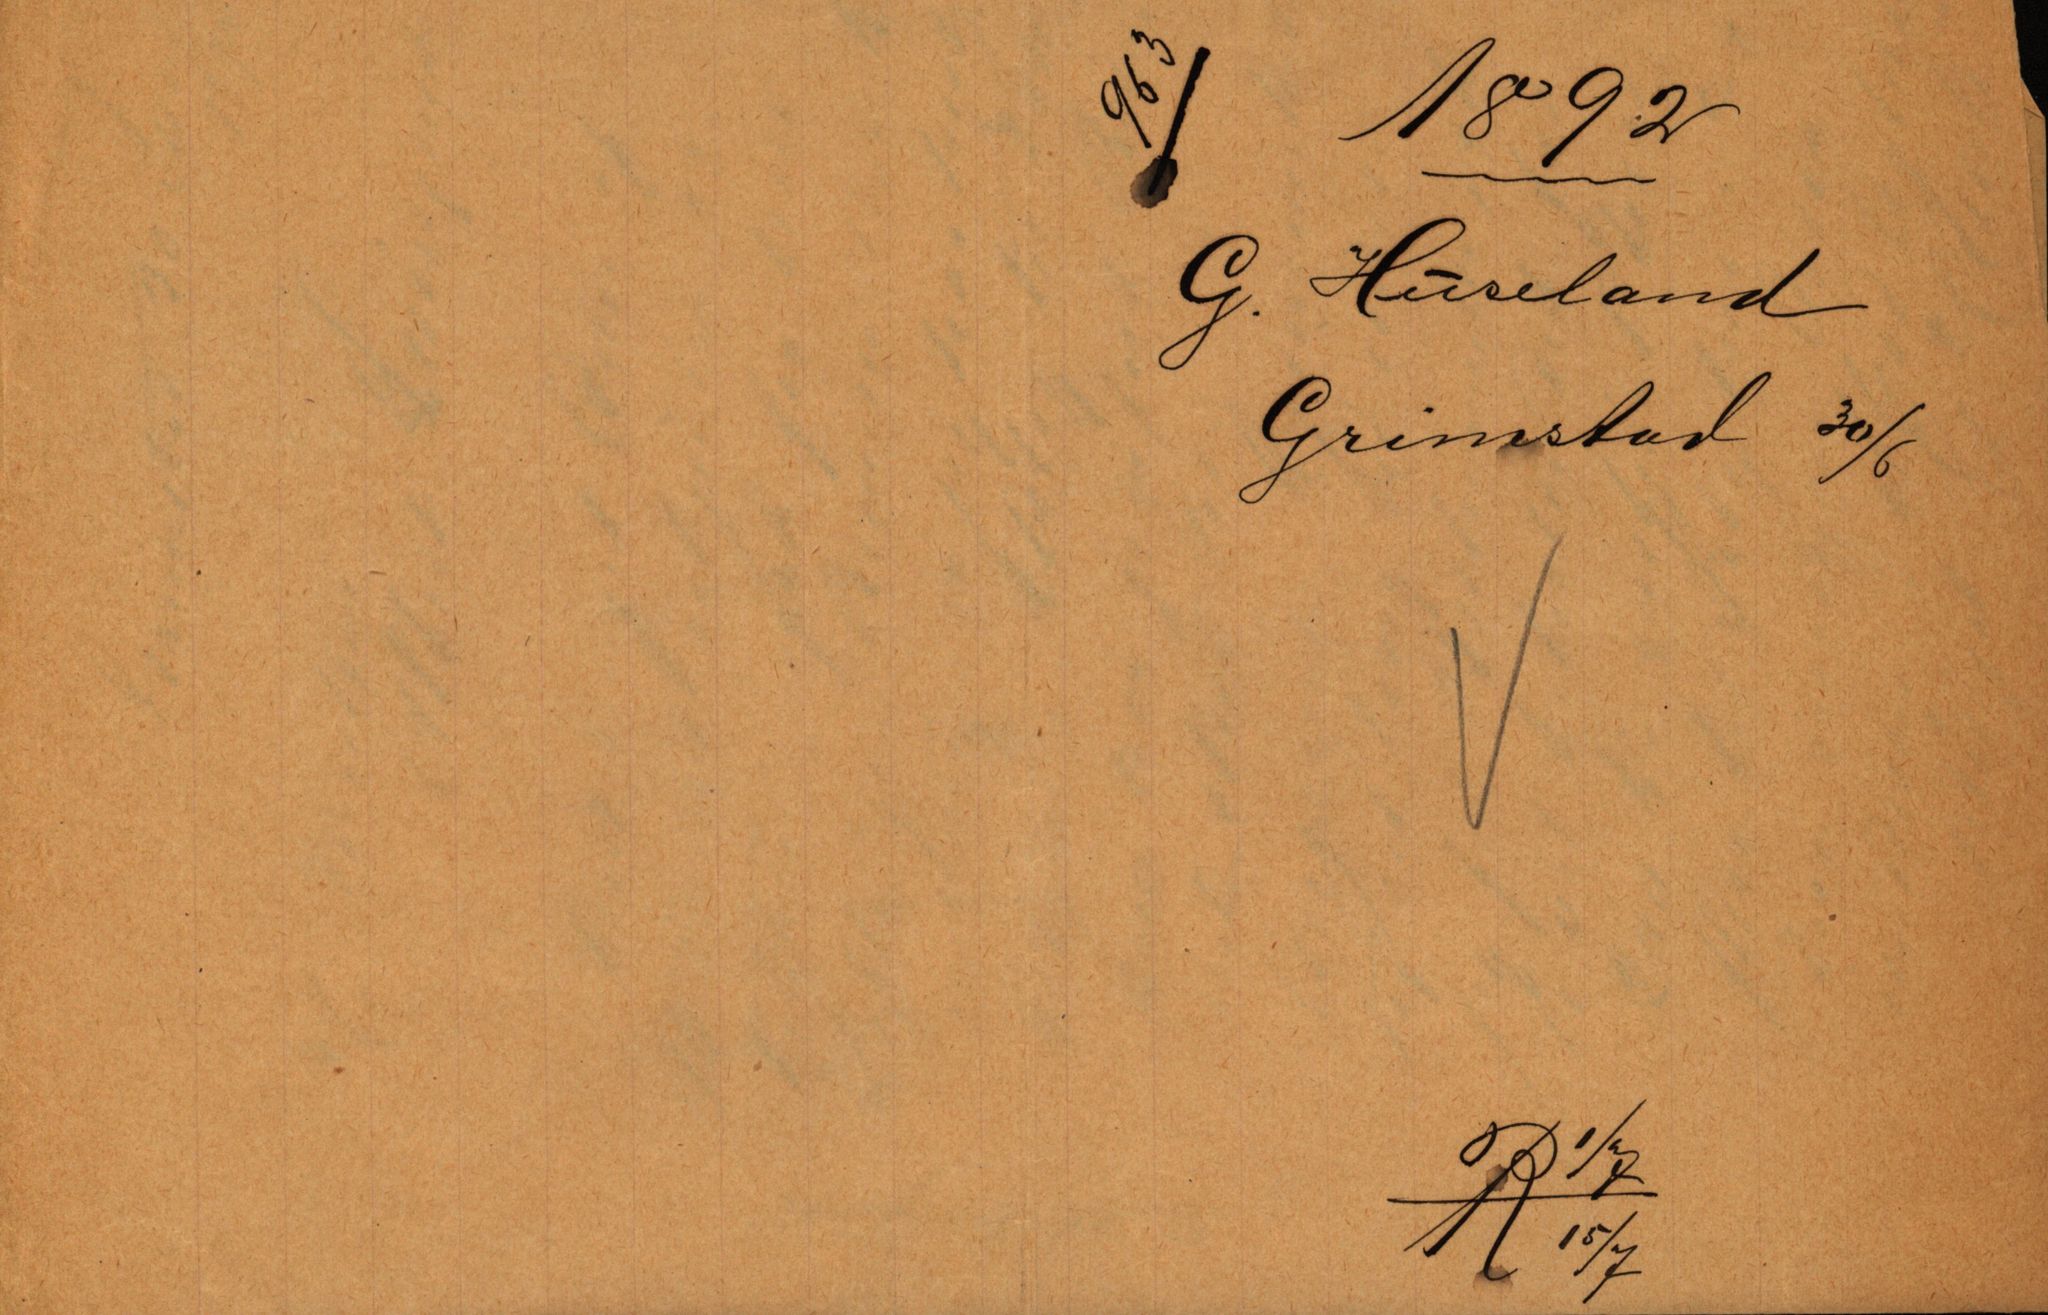 963
1892
G. Huseland
Grimstad 30/6
R 1/7
15/7